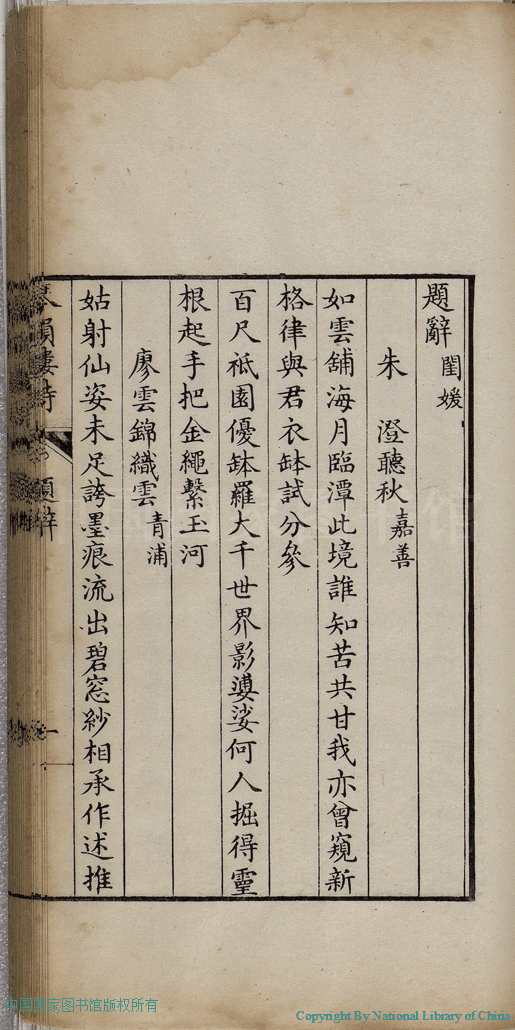 題辭 閨媛
朱　澄聽秋 嘉善
如雲舖海月臨潭此境誰知苦共甘我亦曾窺新
格律與君衣缽試分參
百尺祇園優缽羅大千世界影婆娑何人掘得靈
根起手把金繩繫玉河
廖雲錦織雲 青浦
姑射仙姿未足誇墨痕流出碧窓紗相承作述推
韻樓詩
題辭
一
中国国家图书馆版权所有
Copyright By National Library of China